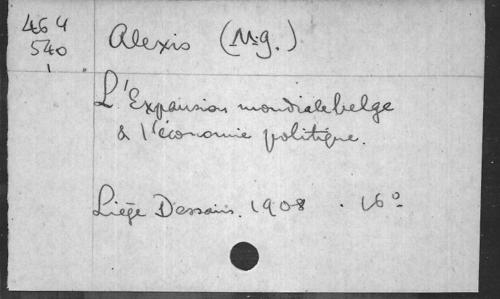 464 Alexis (M.g.)
540
1
L'Expansion mondiale belge
& l'économie politique.
Liège Dessain. 1908. 16°